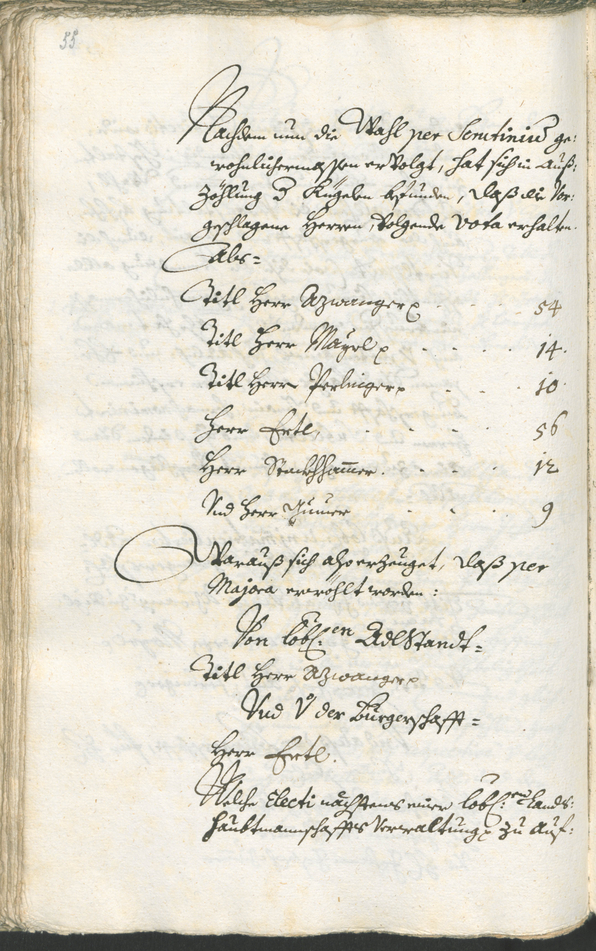 55
Nachdem nun die Wahl per Scrutinium ge:
wohnlichermassen ervolgt, hat sich in auß:
zöhlung d Kugelen befunden, daß die Vor:
geschlagene Herren, volgende Vota erhalten.
Als=
Titl Herr Azwanger 54
Titl Herr Mayrl 14.
Titl Herr Perlinger 10.
Herr Ertl, 56
Herr Stockhhamer. 12
Vnd Herr 9
Warauß sich also erzeuget, daß per
Majora erwöhlt worden:
Von löbl:en Adl Standt=
Titl Herr Azwanger
Vnd V der Burgerschafft=
Herr Ertl.
Welche Electi nächstens einer löbl:en Lands:
haubtmannschaffts Verwaltung zu auf: